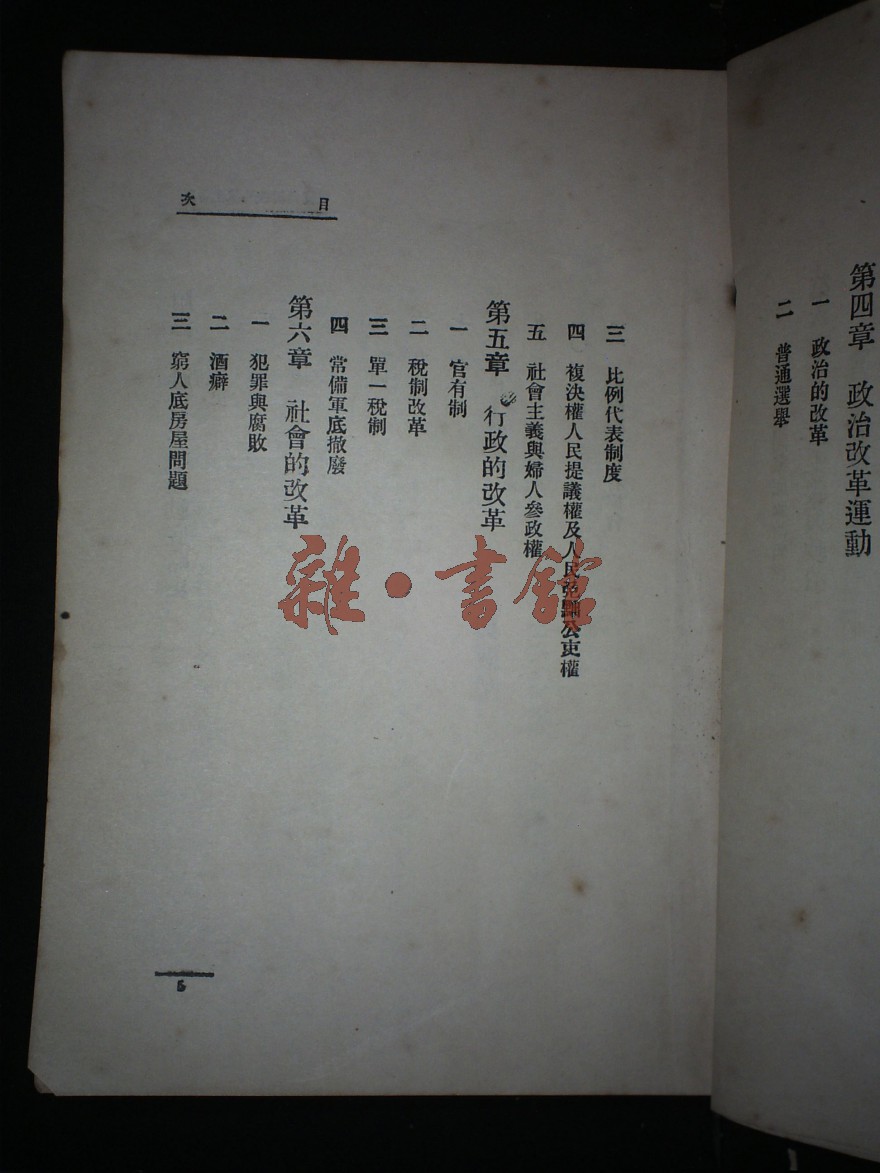 第四章 政治改革運動
一 政治的改革
二 普通選舉
目次
三 比例代表制度
四 複決權人民提議權及人民免黜公吏權
五 社會主義與婦人參政權
第五章 行政的改革
一 官有制
二 稅制改革
三 單一稅制
四 常備軍底撤廢
第六章 社會的改革
一 犯罪與腐敗
二 酒癖
三 窮人底房屋問題
5
雜·書館